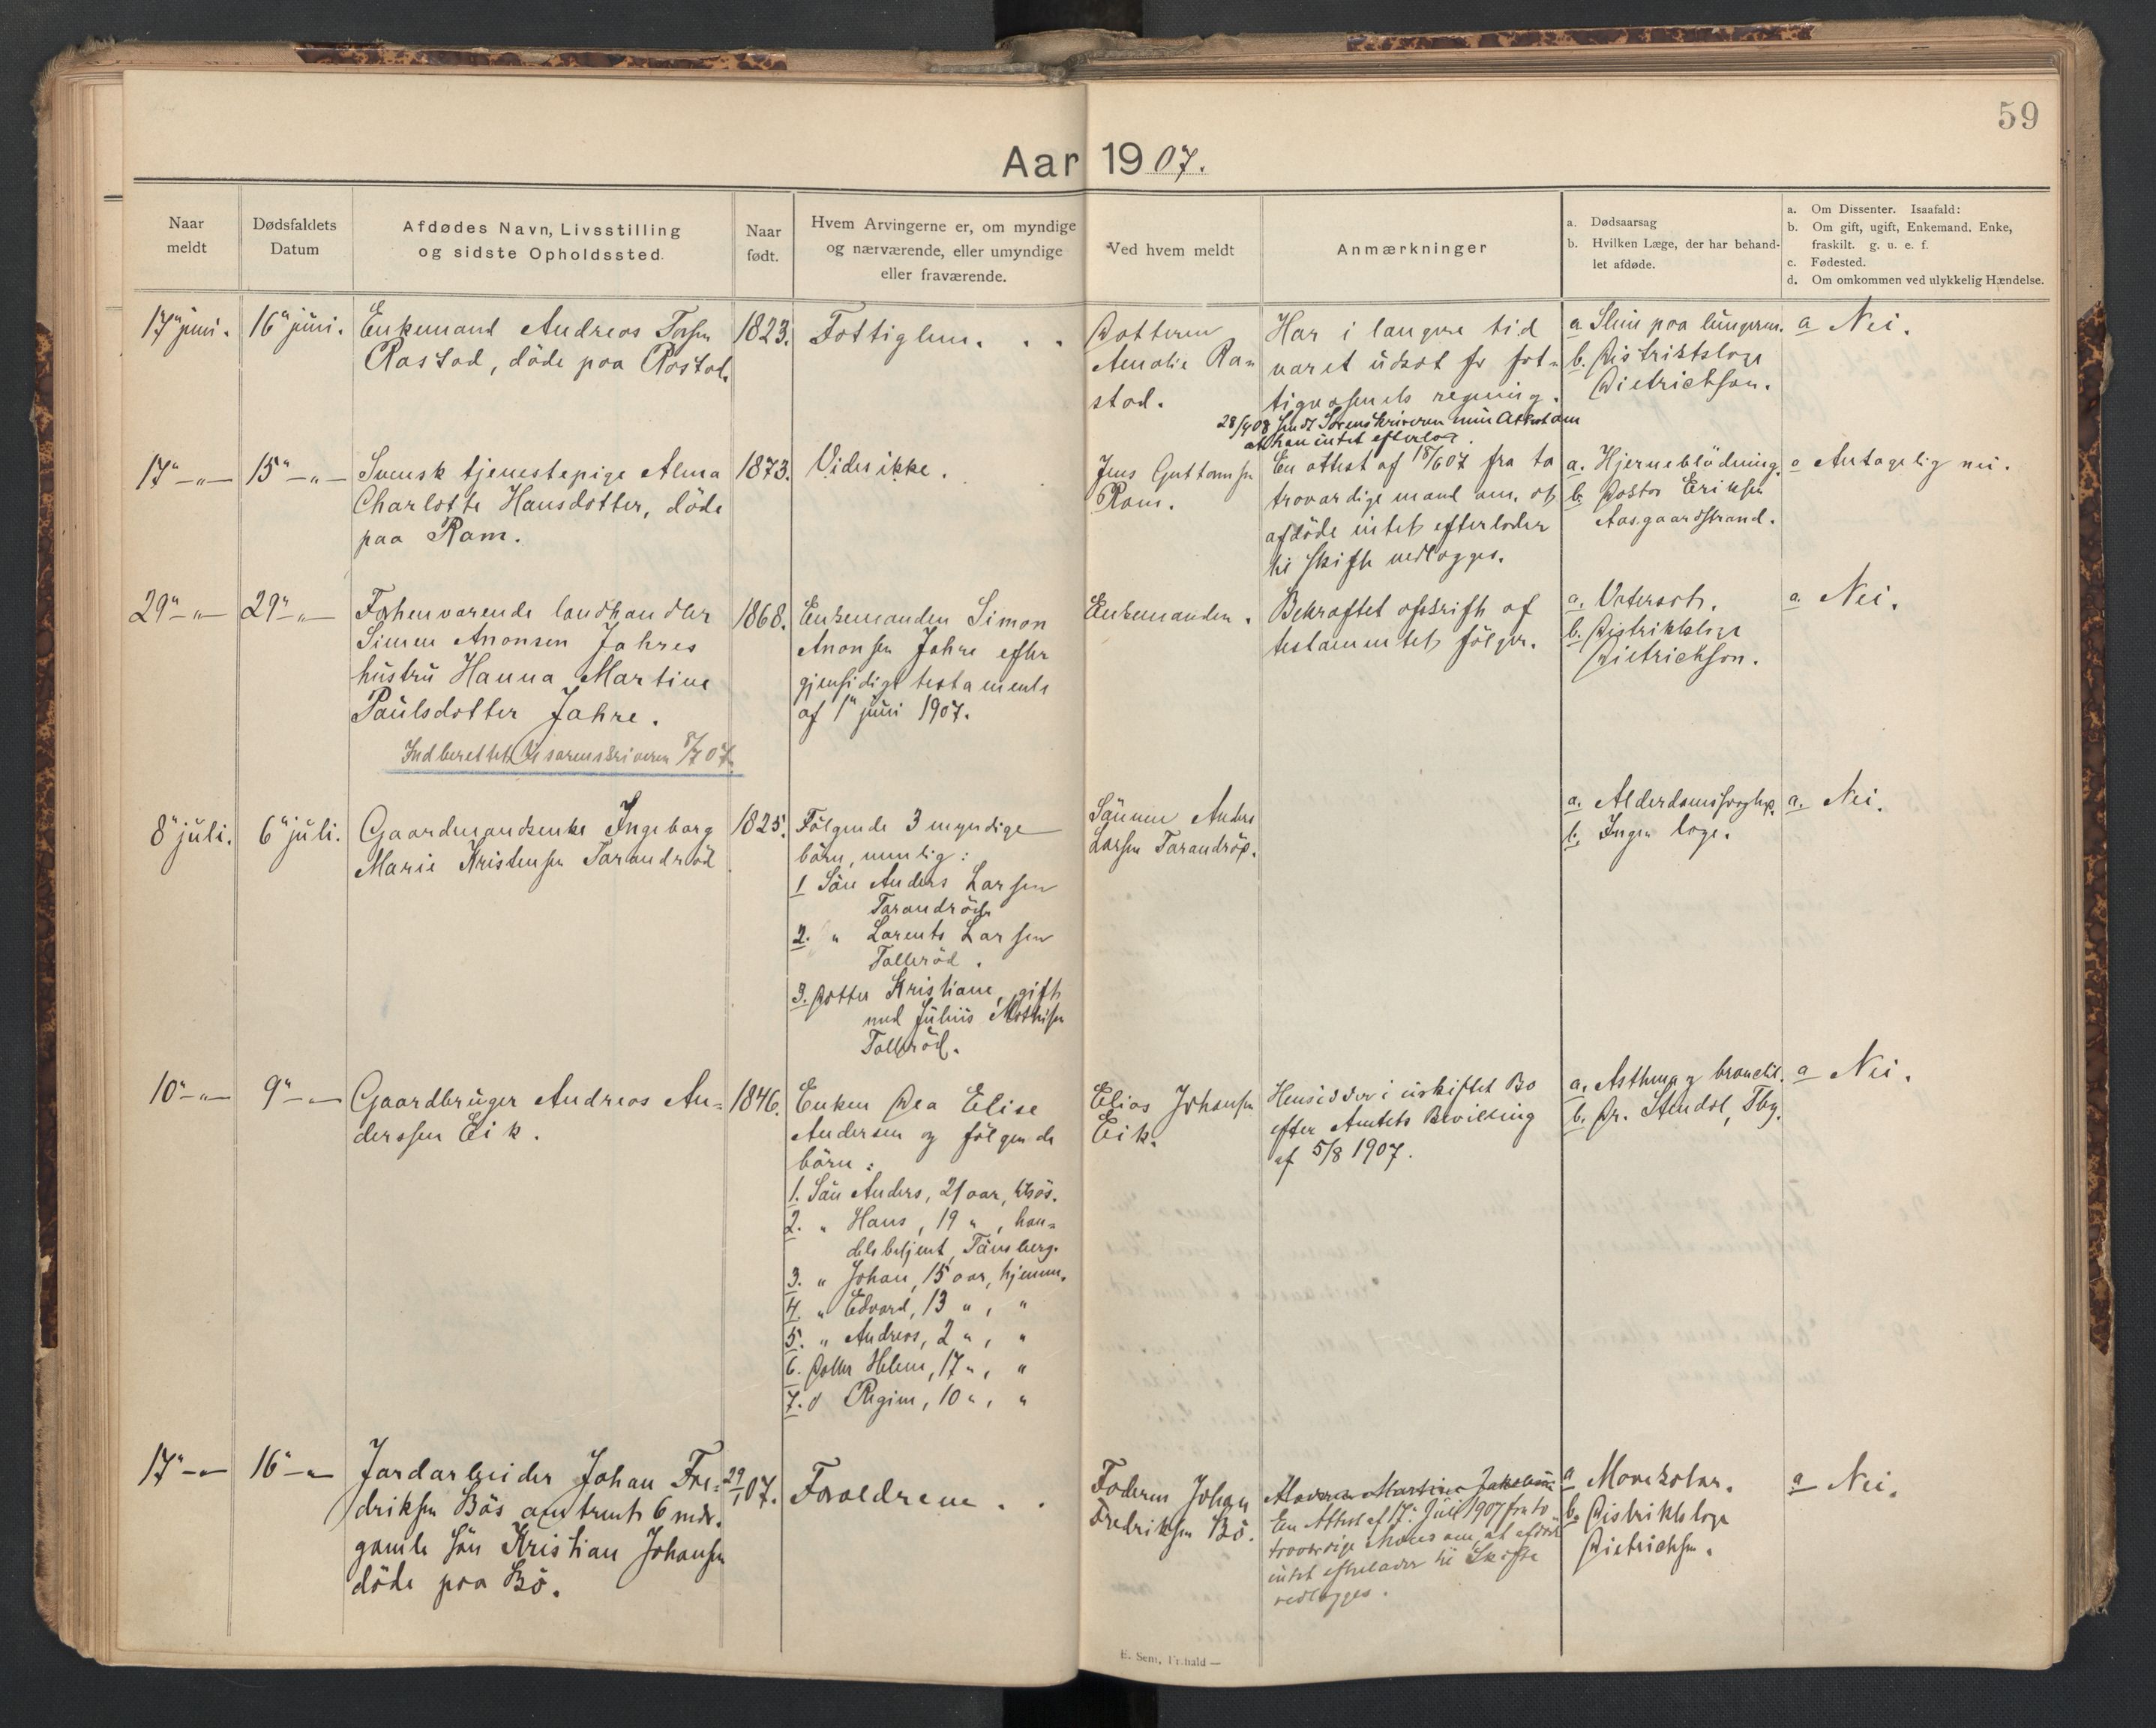 59
Aar 1907.
Naar
meldt
Dødsfaldets
Datum
Afdødes Navn, Livsstilling
og sidste Opholdssted.
Naar
født.
Hvem Arvingerne er, om myndige
og nærværende, eller umyndige
eller fraværende.
Ved hvem meldt
Anmærkninger
a. Dødsaarsag
b. Hvilken Læge, der har behand-
let afdøde.
a. Om Dissenter. Isaafald:
b. Om gift, ugift, Enkemand, Enke,
fraskilt. g. u. e. f.
c. Fødested.
d. Om omkommen ved ulykkelig Hændelse.
17" juni.
16" juni.
Enkemand Andreas
Rastad, døde paa Rastad.
1823.
Fattiglem. . .
Datteren
Amalie Ra-
stad.
Har i længere tid
været udsat for fat-
tigvæsenets regning.
28/4 08 sendt Sorenskriveren min Attest om
at han intet efterlod.
a Slim paa lungerne.
b. Distriktslæge
Dietrichson.
a Nei.
17" — " —
15" — " —
Svensk tjenestepige Alma
Charlotte Hansdotter, döde
paa Ram.
1873.
Vides ikke.
Jens Guttormsen
Ram.
En attest af 18/6 07 fra to
troværdige mænd om, at
afdöde intet efterlader
til skifte vedlægges.
a. Hjerneblödning.
b. Doktor Eriksen
Aasgaardstrand.
a Antagelig nei.
29" — " —
29" — " —
Forhenværende landhandler
Simen Anonsen Jahres
hustru Hanna Martine
Paulsdotter Jahre.
Indberettet til sorenskriveren 8/7 07.
1868.
Enkemanden Simon
Anonsen Jahre efter
gjensidigt testamente
af 1" juni 1907.
Enkemanden.
Bekræftet afskrift af
testamentet fölger.
a. Vatersot.
b. Distriktslæge
Dietrichson.
a. Nei.
8" juli.
6" juli.
Gaardmandsenke Ingeborg
Marie Kristensen Taranderöd
1825.
Fölgende 3 myndige
börn, nemlig:
1 Sön Anders Larsen
Taranderöd
2. " Lorents Larsen
Tolleröd.
3. Dotter Kristiane, gift
med Julius Mathisen
Tolleröd.
Sönnen Anders
Larsen Taranderöd.
a. Alderdomssvaghed.
b. Ingen læge.
a. Nei.
10" — " —
9" — " —
Gaardbruger Andreas An-
derssen Eik.
1846.
Enken Dea Elise
Andersen og fölgende
börn:
1. Sön Anders, 21 aar, tilsös.
2. " Hans, 19 ", han-
delsbetjent, Tönsberg.
3. " Johan, 15 aar, hjemme.
4. " Edvard, 13 ", "
5. " Andreas, 2 ", "
6. Dotter Helene, 17 ", "
7. d Regine, 10 ", "
Elias Johansen
Eik.
Hensidder i uskiftet Bo
efter Amtets Bevilling
af 5/8 1907.
a. Asthma og bronchit.
b. Dr. Stendal, Tbg.
a Nei.
17" — " —
16" — " —
Jordarbeider Johan Fre-
driksen Bös omtrent 6 mdr.
gamle sön Kristian Johansen
döde paa Bö.
29/1 07.
Forældrene . .
Faderen Johan
Fredriksen Bö.
Martin
En Attest af 17. Juli 1907 fra to
troværdige Mænd om, at afdöde
intet efterlader til Skifte
vedlægges.
a
b. Distriktslæge
Dietrichson.
a Nei.
E. Sem, Fr.hald —